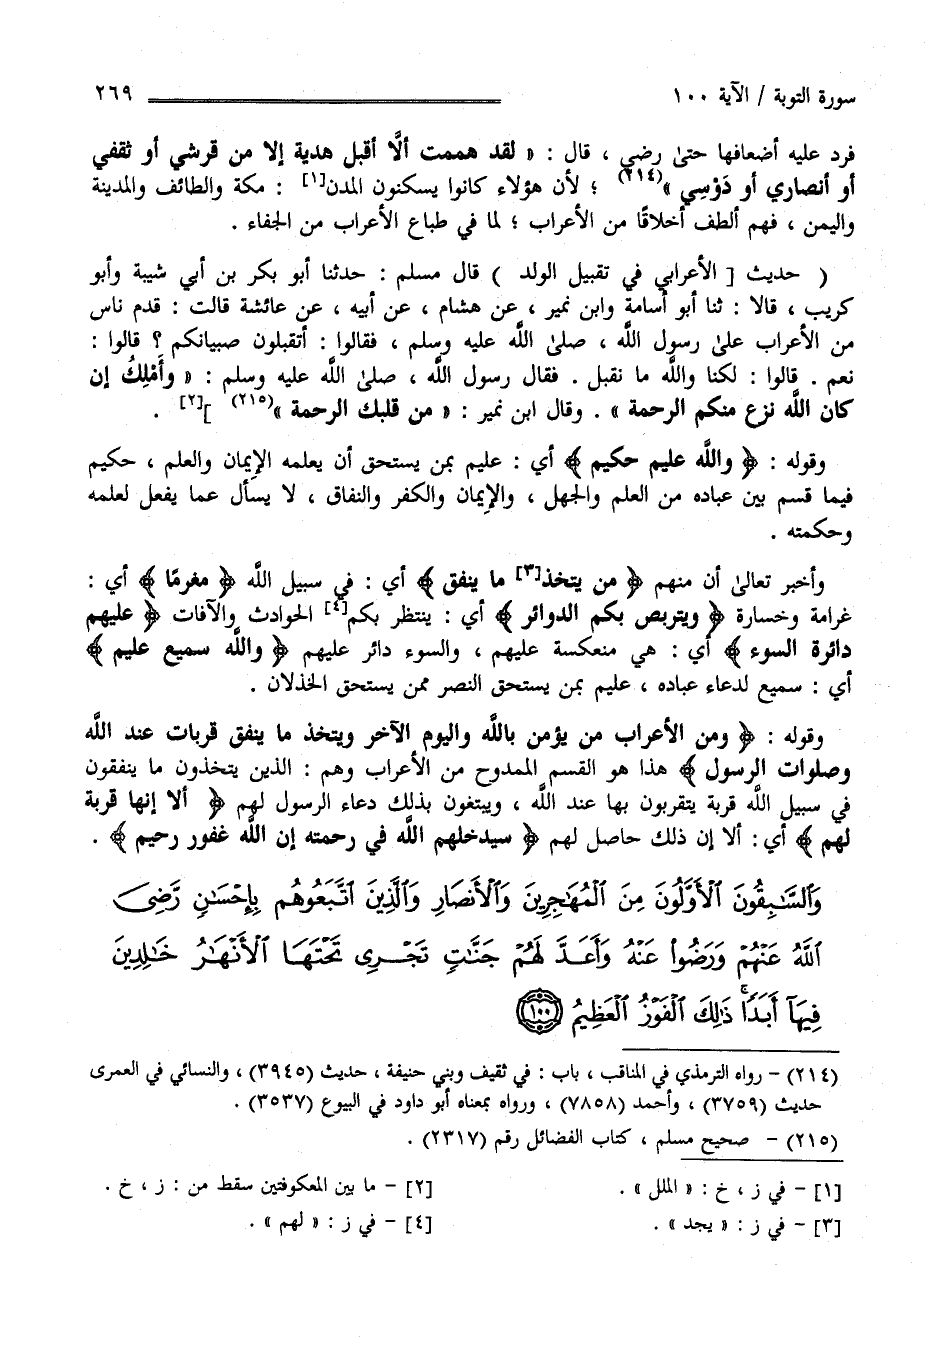 سورة التوبة / الآية ١٠٠ ٢٦٩
فرد عليه أضعافها حتىٰ رضي ، قال : « لقد هممت ألَّا أقبل هدية إلا من قرشي أو ثقفي
أو أنصاري أو دَوْسِي »(٢١٤) ؛ لأن هؤلاء كانوا يسكنون المدن[١] : مكة والطائف والمدينة
واليمن ، فهم ألطف أخلاقًا من الأعراب ؛ لما في طباع الأعراب من الجفاء .
( حديث [ الأعرابي في تقبيل الولد ) قال مسلم : حدثنا أبو بكر بن أبي شيبة وأبو
كريب ، قالا : ثنا أبو أسامة وابن نمير ، عن هشام ، عن أبيه ، عن عائشة قالت : قدم ناس
من الأعراب علىٰ رسول اللَّه ، صلىٰ اللَّه عليه وسلم ، فقالوا : أتقبلون صبيانكم ؟ قالوا :
نعم . قالوا : لكنا واللَّه ما نقبل . فقال رسول اللَّه ، صلىٰ اللَّه عليه وسلم : « وأَمْلِكُ إن
كان اللَّه نزع منكم الرحمة » . وقال ابن نمير : « من قلبك الرحمة »(٢١٥) ][٢] .
وقوله : ﴿ واللَّه عليم حكيم ﴾ أي : عليم بمن يستحق أن يعلمه الإيمان والعلم ، حكيم
فيما قسم بين عباده من العلم والجهل ، والإيمان والكفر والنفاق ، لا يسأل عما يفعل لعلمه
وحكمته .
وأخبر تعالىٰ أن منهم ﴿ من يتخذ[٣] ما ينفق ﴾ أي : في سبيل اللَّه ﴿ مغرمًا ﴾ أي :
غرامة وخسارة ﴿ ويتربص بكم الدوائر ﴾ أي : ينتظر بكم[٤] الحوادث والآفات ﴿ عليهم
دائرة السوء ﴾ أي : هي منعكسة عليهم ، والسوء دائر عليهم ﴿ واللَّه سميع عليم ﴾
أي : سميع لدعاء عباده ، عليم بمن يستحق النصر ممن يستحق الخذلان .
وقوله : ﴿ ومن الأعراب من يؤمن باللَّه واليوم الآخر ويتخذ ما ينفق قربات عند اللَّه
وصلوات الرسول ﴾ هذا هو القسم الممدوح من الأعراب وهم : الذين يتخذون ما ينفقون
في سبيل اللَّه قربة يتقربون بها عند اللَّه ، ويبتغون بذلك دعاء الرسول لهم ﴿ ألا إنها قربة
لهم ﴾ أي : ألا إن ذلك حاصل لهم ﴿ سيدخلهم اللَّه في رحمته إن اللَّه غفور رحيم ﴾ .
وَٱلسَّٰبِقُونَ ٱلْأَوَّلُونَ مِنَ ٱلْمُهَٰجِرِينَ وَٱلْأَنصَارِ وَٱلَّذِينَ ٱتَّبَعُوهُم بِإِحْسَٰنٍ رَّضِىَ
ٱللَّهُ عَنْهُمْ وَرَضُوا۟ عَنْهُ وَأَعَدَّ لَهُمْ جَنَّٰتٍ تَجْرِى تَحْتَهَا ٱلْأَنْهَٰرُ خَٰلِدِينَ
فِيهَآ أَبَدًا ۚ ذَٰلِكَ ٱلْفَوْزُ ٱلْعَظِيمُ ١٠٠
(٢١٤) – رواه الترمذي في المناقب ، باب : في ثقيف وبني حنيفة ، حديث (٣٩٤٥) ، والنسائي في العمرى
حديث (٣٧٥٩) ، وأحمد (٧٨٥٨) ، ورواه بمعناه أبو داود في البيوع (٣٥٣٧) .
(٢١٥) – صحيح مسلم ، كتاب الفضائل رقم (٢٣١٧) .
[١] – في ز ، خ : « الملل » . [٢] – ما بين المعكوفتين سقط من : ز ، خ .
[٣] – في ز : « يجد » . [٤] – في ز : « لهم » .